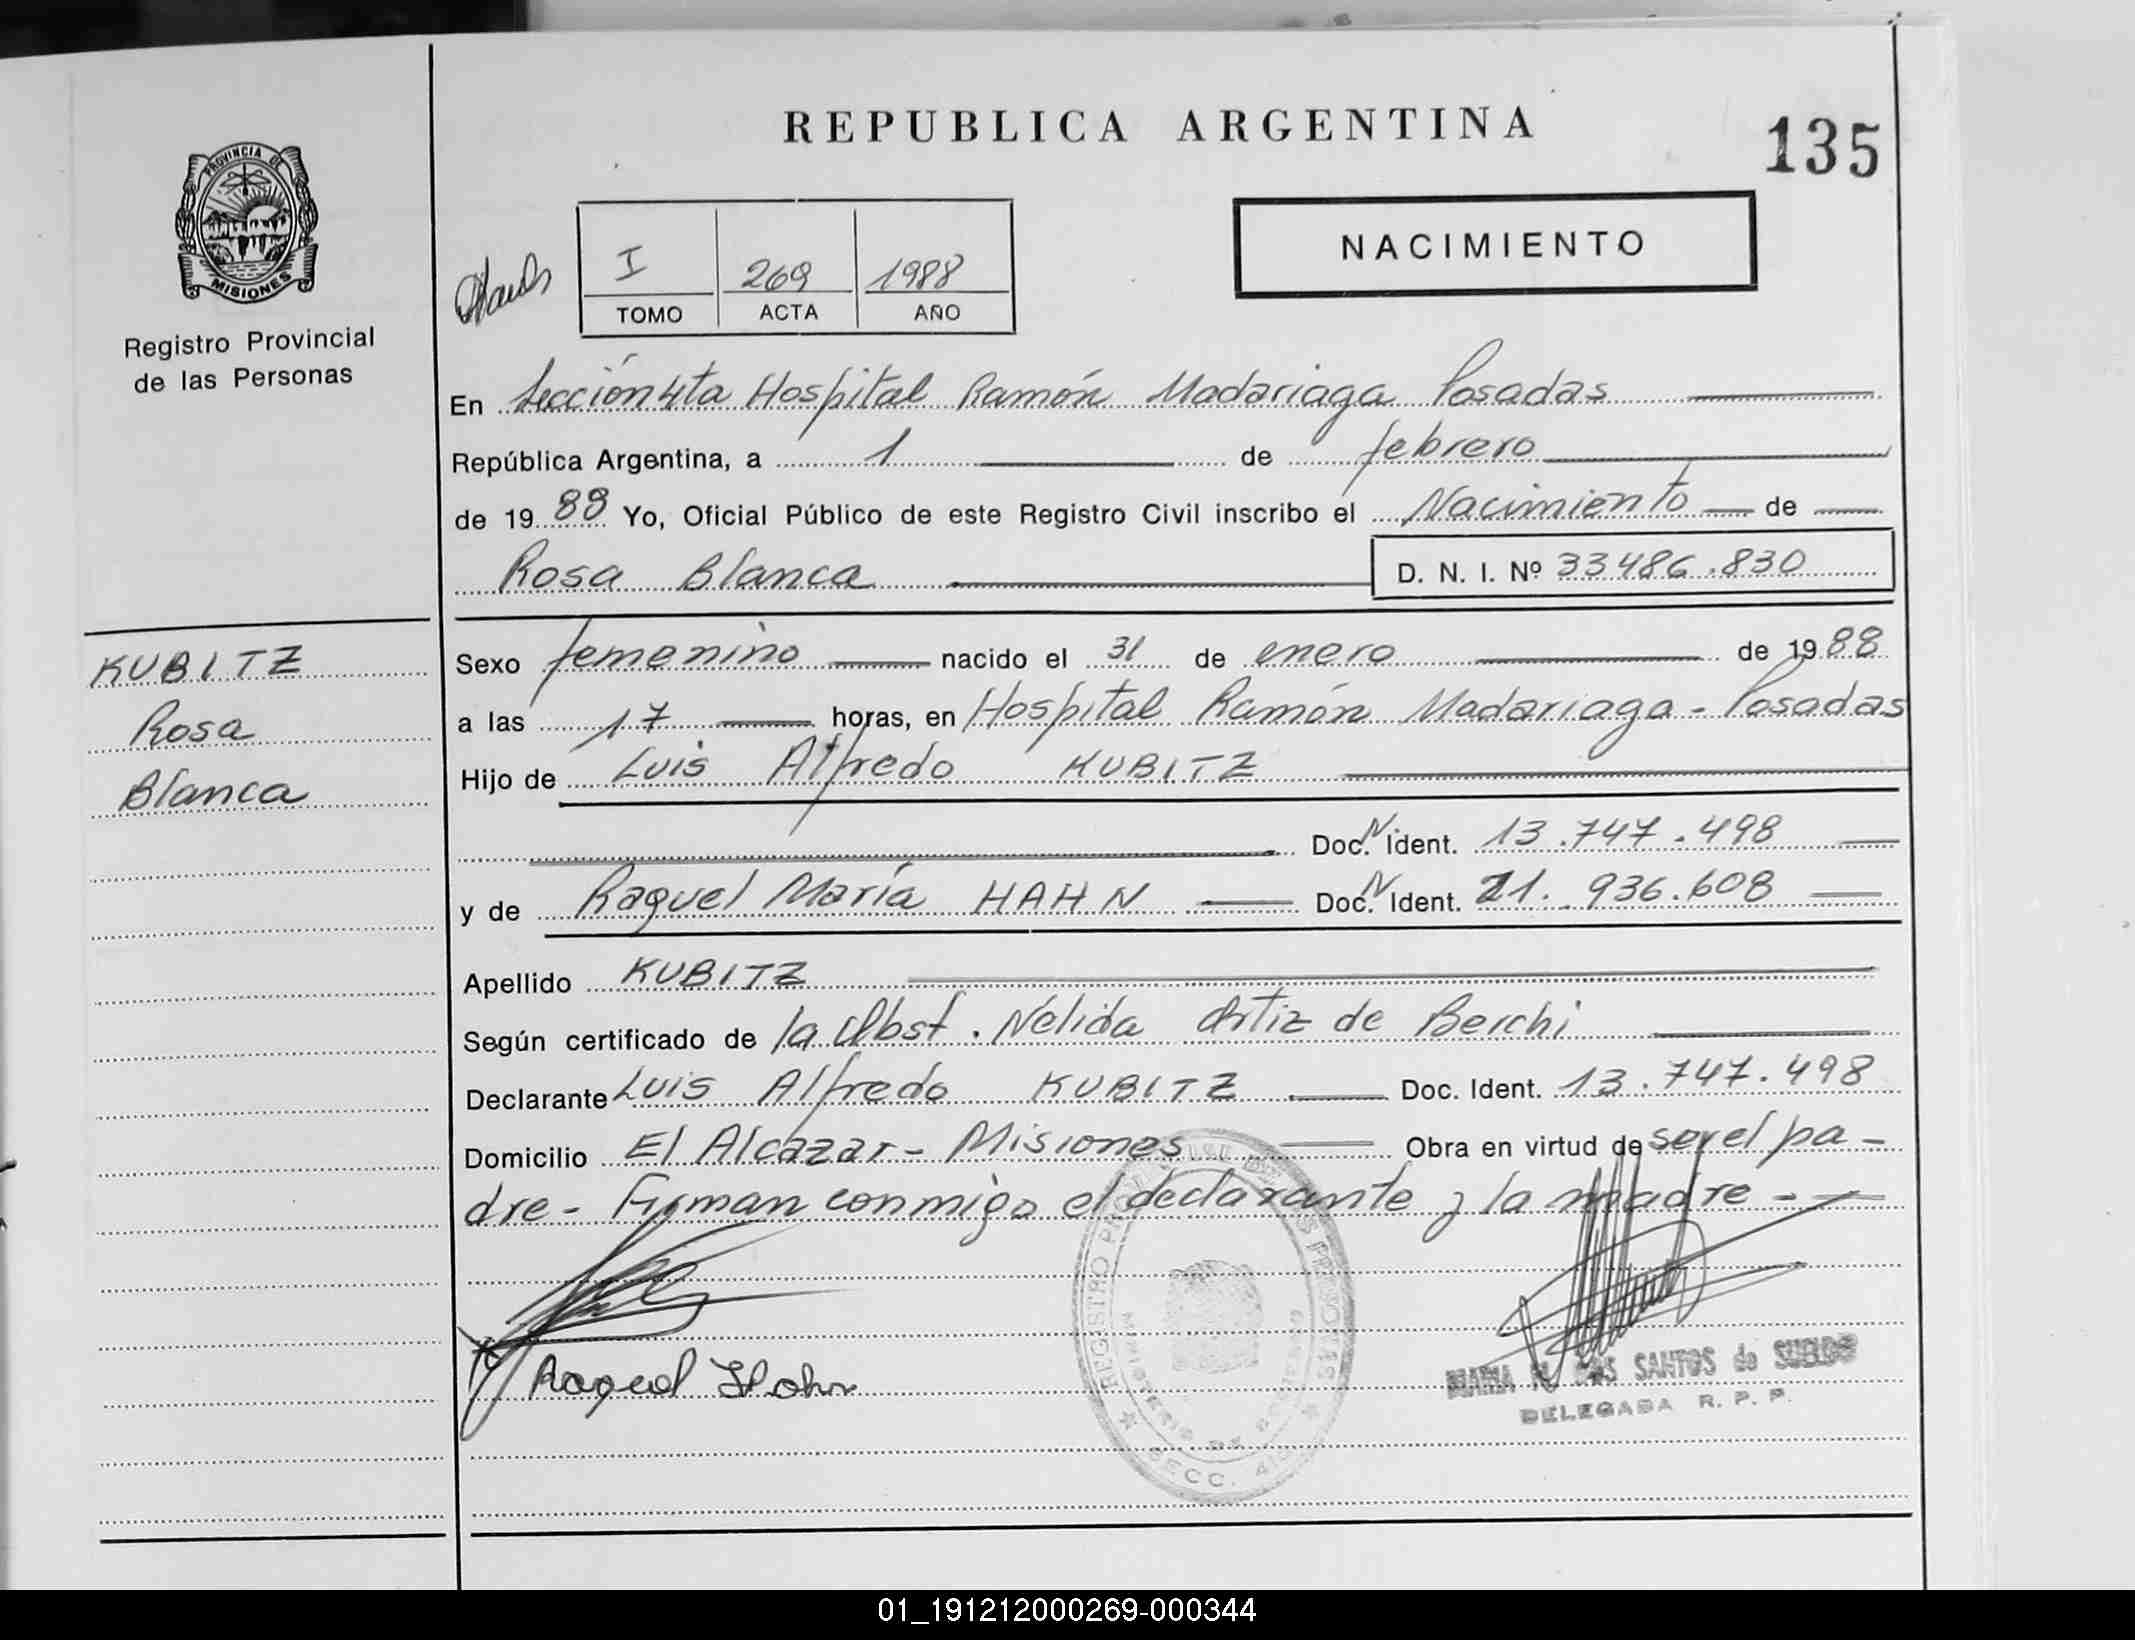 REPUBLICA ARGENTINA
135
PROVINCIA DE
MISIONES
Registro Provincial
de las Personas
NACIMIENTO
I 269 1988
TOMO ACTA AÑO
En Sección 4ta Hospital Ramón Madariaga Posadas
República Argentina, a 1 de febrero
de 1988 Yo, Oficial Público de este Registro Civil inscribo el Nacimiento de
Rosa Blanca D. N. I. Nº 33486.830
KUBITZ
Rosa
Blanca
Sexo femenino nacido el 31 de enero de 1988
a las 17 horas, en Hospital Ramón Madariaga - Posadas
Hijo de Luis Alfredo KUBITZ
Doc. N Ident. 13.747.498
y de Raquel María HAHN Doc. N Ident. 21.936.608
Apellido KUBITZ
Según certificado de la Obst. Nélida Ortiz de Berchi
Declarante Luis Alfredo KUBITZ Doc. Ident. 13.747.498
Domicilio El Alcázar - Misiones Obra en virtud de ser el pa-
dre - Firman conmigo el declarante y la madre -
Raquel Hahn
MARIA DOS SANTOS de SUELDO
DELEGADA R. P. P.
REGISTRO PROVINCIAL DE LAS PERSONAS
MINISTERIO DE GOBIERNO
SECC. 4ta
01_191212000269-000344